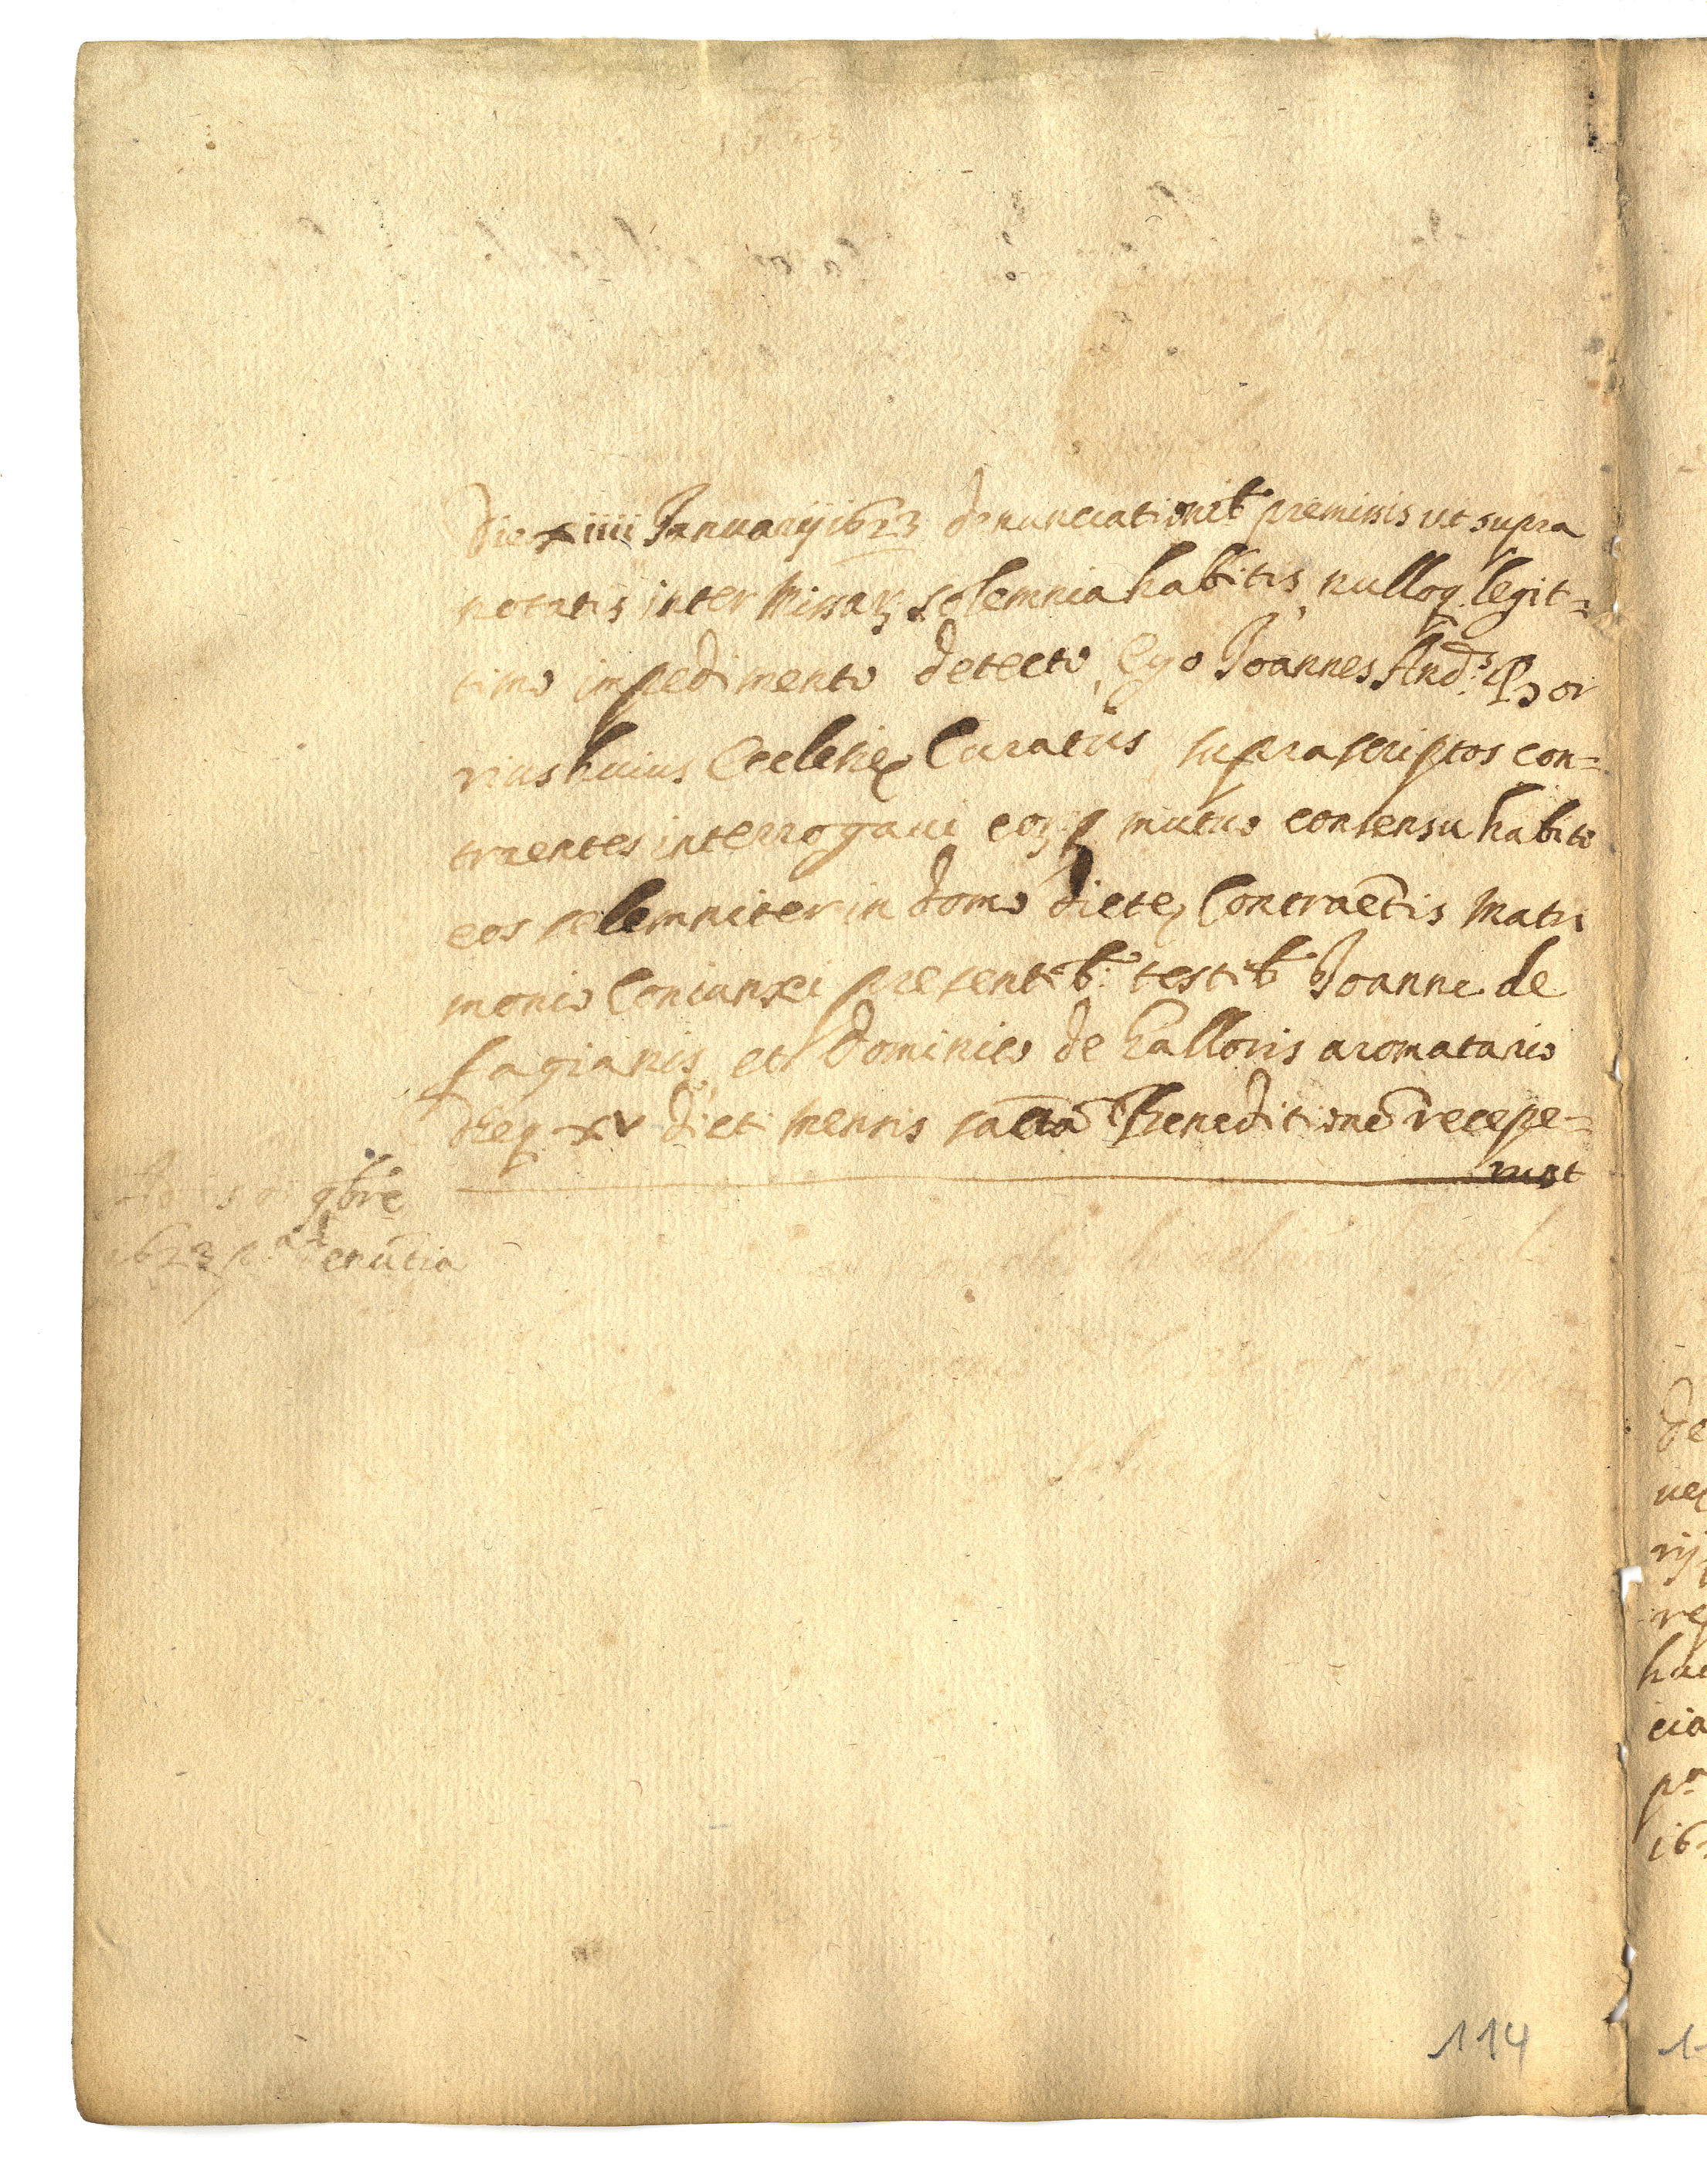 Die xiiii Januarij 1623 denunciationib. premissis ut supra
notatis inter Missarꝫ solemnia habitis, nulloq. legit=
timo impedimento detecto, Ego Joannes And.s
rius huius Ecclesię Curatus suprascriptos con=
traentes interrogaui eorꝫq mutuo consensu habito
eos solemniter in domo dictę Contraētis Matri
monio Coniunxi presentib. testib. Joanne de
fagianis, et Dominico de Galloris aromatario
dieq. xv dicti mensis sactā Beneditionē recepe=
runt
9bre
1623 p.a denūtia
114
De
rij
re
cia
p.a
16